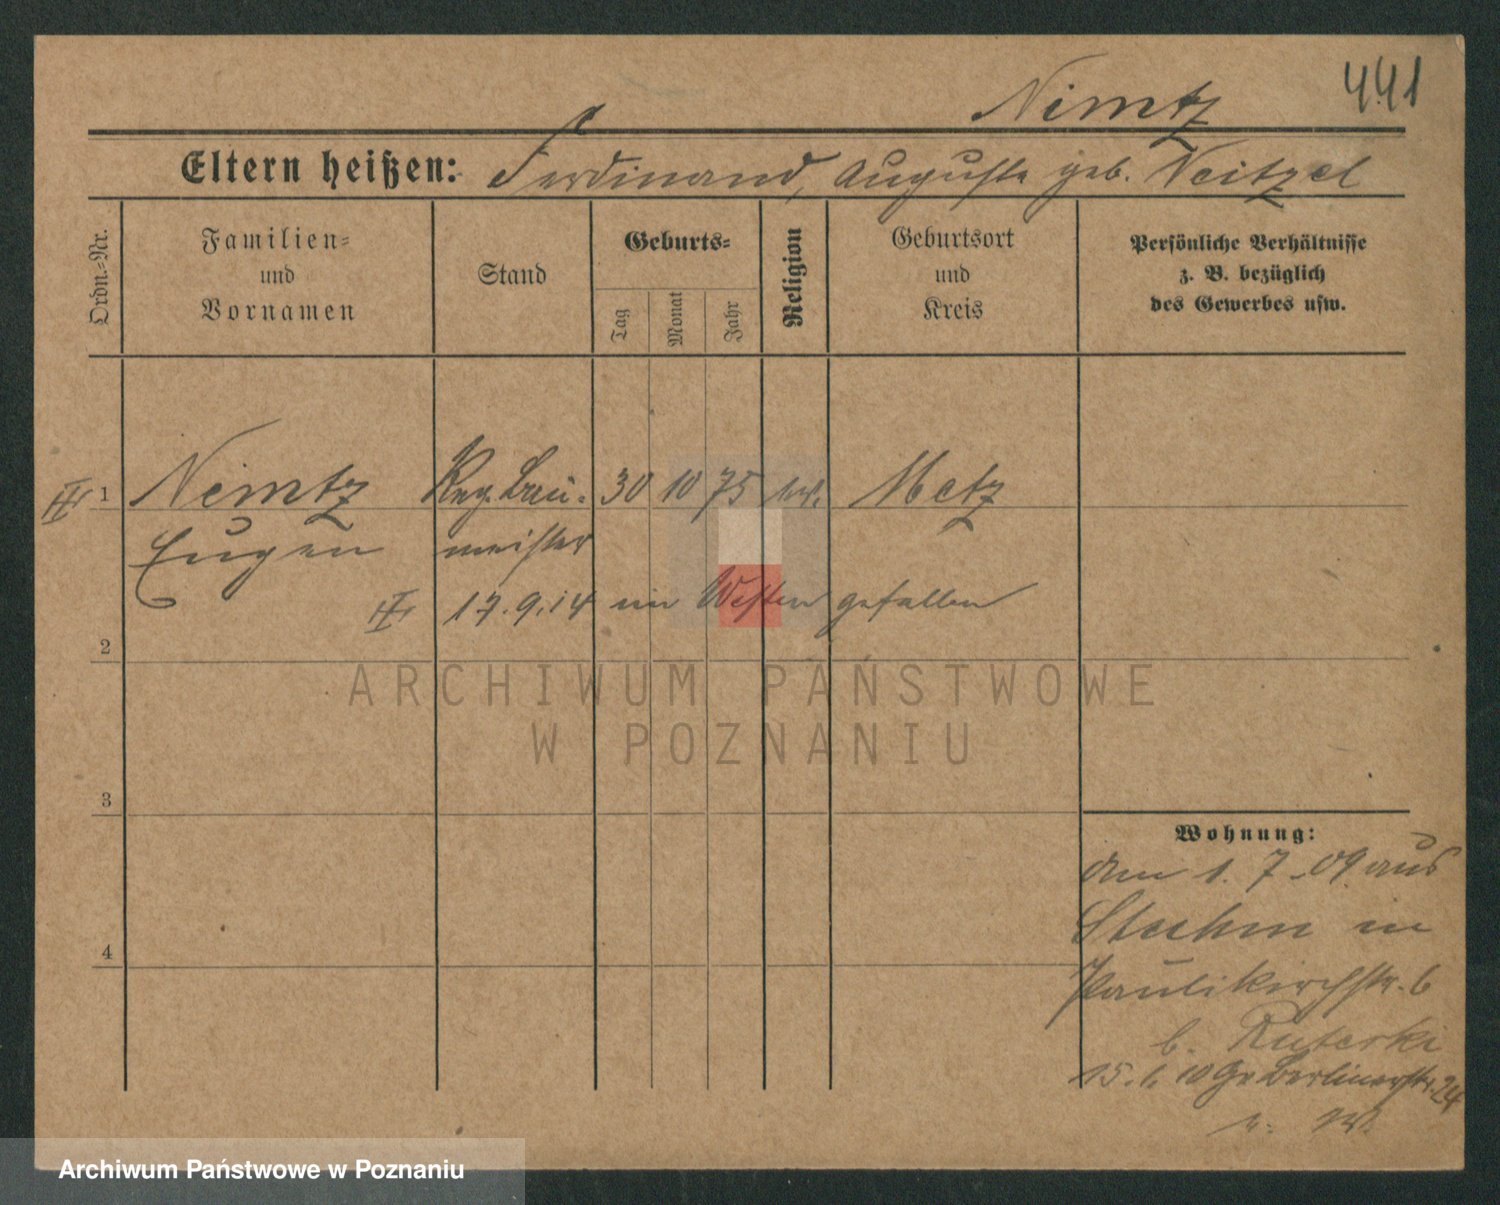 Nimtz 441
Eltern heißen: Ferdinand, Auguste geb. Neitzel
Ordn.-Nr.
Familien-
und
Vornamen
Stand
Geburts-
Tag
Monat
Jahr
Religion
Geburtsort
und
Kreis
Persönliche Verhältnisse
z. B. bezüglich
des Gewerbes usw.
1 Nimtz Reg. Bau- 30 10 75 ev. Metz
Eugen meister
17.9.14 im Westen gefallen
2
3
4
Wohnung:
den 1. 7. 09 aus
in
Paulikirchstr. 6
b.
15. 1. 10 Gr Berlinerstr. 24
ARCHIWUM PAŃSTWOWE
W POZNANIU
Archiwum Państwowe w Poznaniu